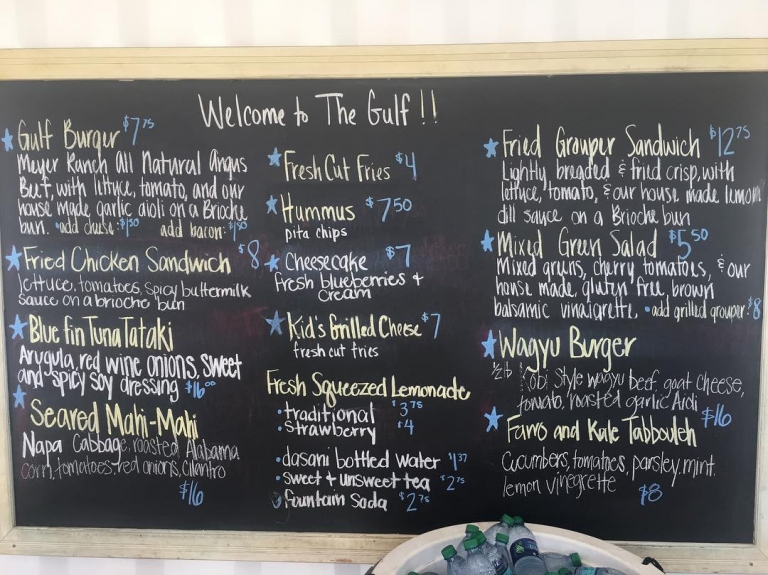 Welcome to The Gulf!!
Gulf Burger $7.75
Meyer Ranch All Natural Angus
Beef, with lettuce, tomato, and our
house made garlic aioli on a Brioche
bun. • add cheese: $1.50 add bacon: $1.50
Fried Chicken Sandwich $8
lettuce, tomatoes, spicy buttermilk
sauce on a brioche bun
Blue fin Tuna Tataki
Arugula, red wine onions, sweet
and spicy soy dressing $16.00
Seared Mahi-Mahi
Napa Cabbage, roasted Alabama
corn, tomatoes, red onions, cilantro
$16
Fresh Cut Fries $4
Hummus $7.50
pita chips
Cheesecake $7
fresh blueberries +
cream
Kid's Grilled Cheese $7
fresh cut fries
Fresh Squeezed Lemonade
• traditional $3.75
• strawberry $4
• dasani bottled water $1.37
• sweet + unsweet tea $2.75
fountain soda $2.75
Fried Grouper Sandwich $12.75
Lightly breaded & fried crisp, with
lettuce, tomato, & our house made lemon
dill sauce on a Brioche bun
Mixed Green Salad $5.50
Mixed greens, cherry tomatoes, & our
house made, gluten free, brown
balsamic vinaigrette. • add grilled grouper: $8
Wagyu Burger
1/2 lb Kobi Style wagyu beef, goat cheese,
tomato, roasted garlic Aioli $16
Farro and Kale Tabbouleh
cucumbers, tomatoes, parsley, mint,
lemon vinegrette $8